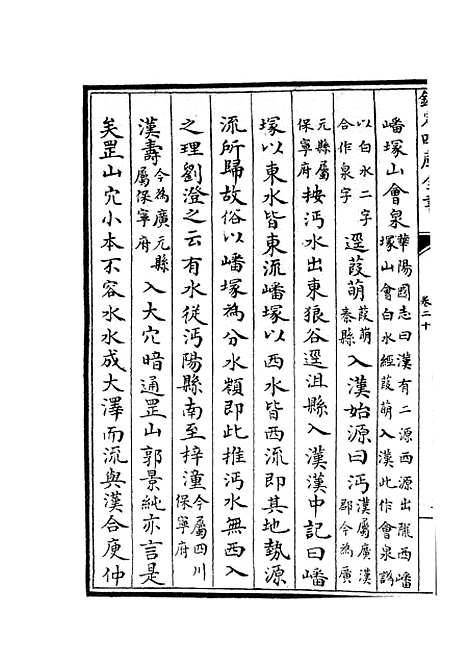 欽定四庫全書
卷二十
嶓塚山會泉華陽國志曰漢有二源西源出隴西嶓塚山會白水經葭萌入漢此作會泉誤
以白水二字合作泉字逕葭萌葭萌秦縣入漢始源曰沔漢屬廣漢郡今為廣
元縣屬保寧府按沔水出東狼谷逕沮縣入漢漢中記曰嶓
塚以東水皆東流嶓塚以西水皆西流即其地勢源
流所歸故俗以嶓塚為分水嶺即此推沔水無西入
之理劉澄之云有水從沔陽縣南至梓潼今屬四川保寧府
漢壽今為廣元縣屬保寧府入大穴暗通罡山郭景純亦言是
矣罡山穴小本不容水水成大澤而流與漢合庾仲